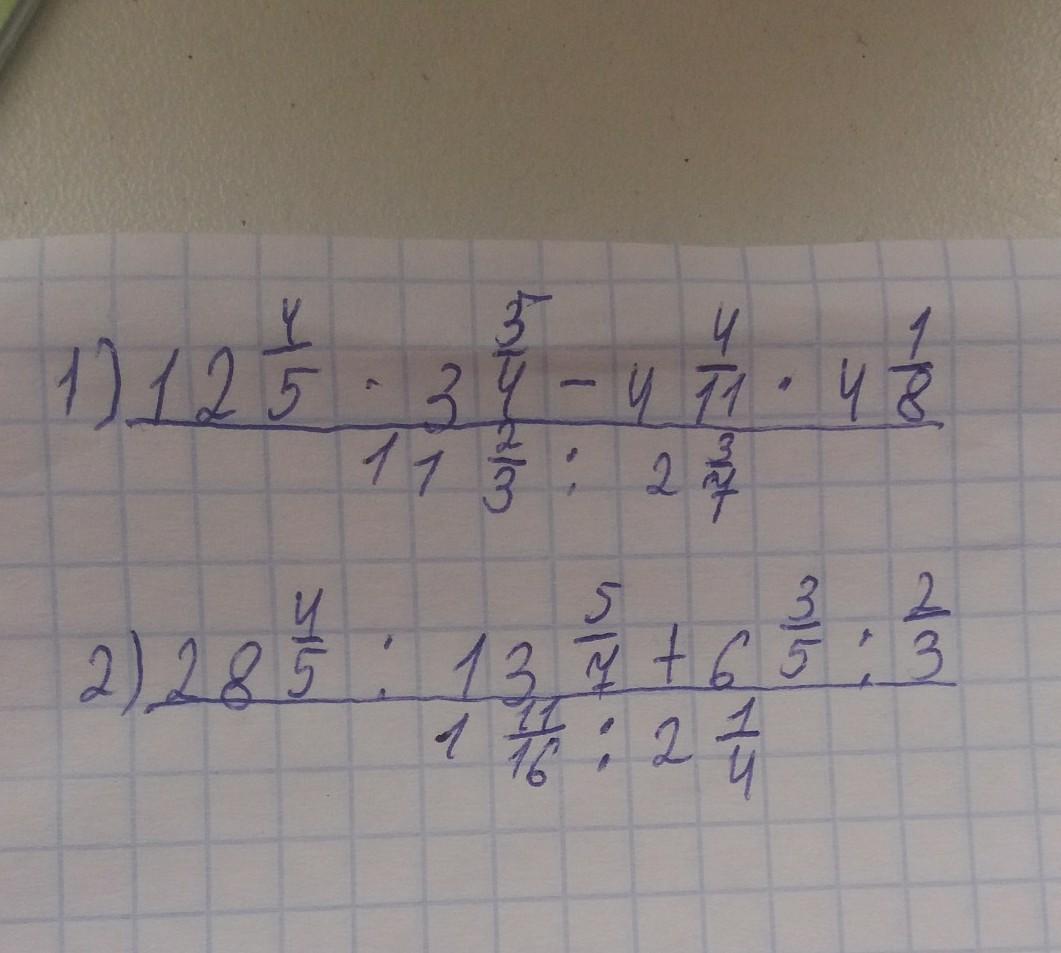 1) 12 4/5 · 3 3/4 - 4 4/11 · 4 1/8
11 2/3 : 2 3/7
2) 28 4/5 : 13 5/7 + 6 3/5 : 2/3
1 11/16 : 2 1/4